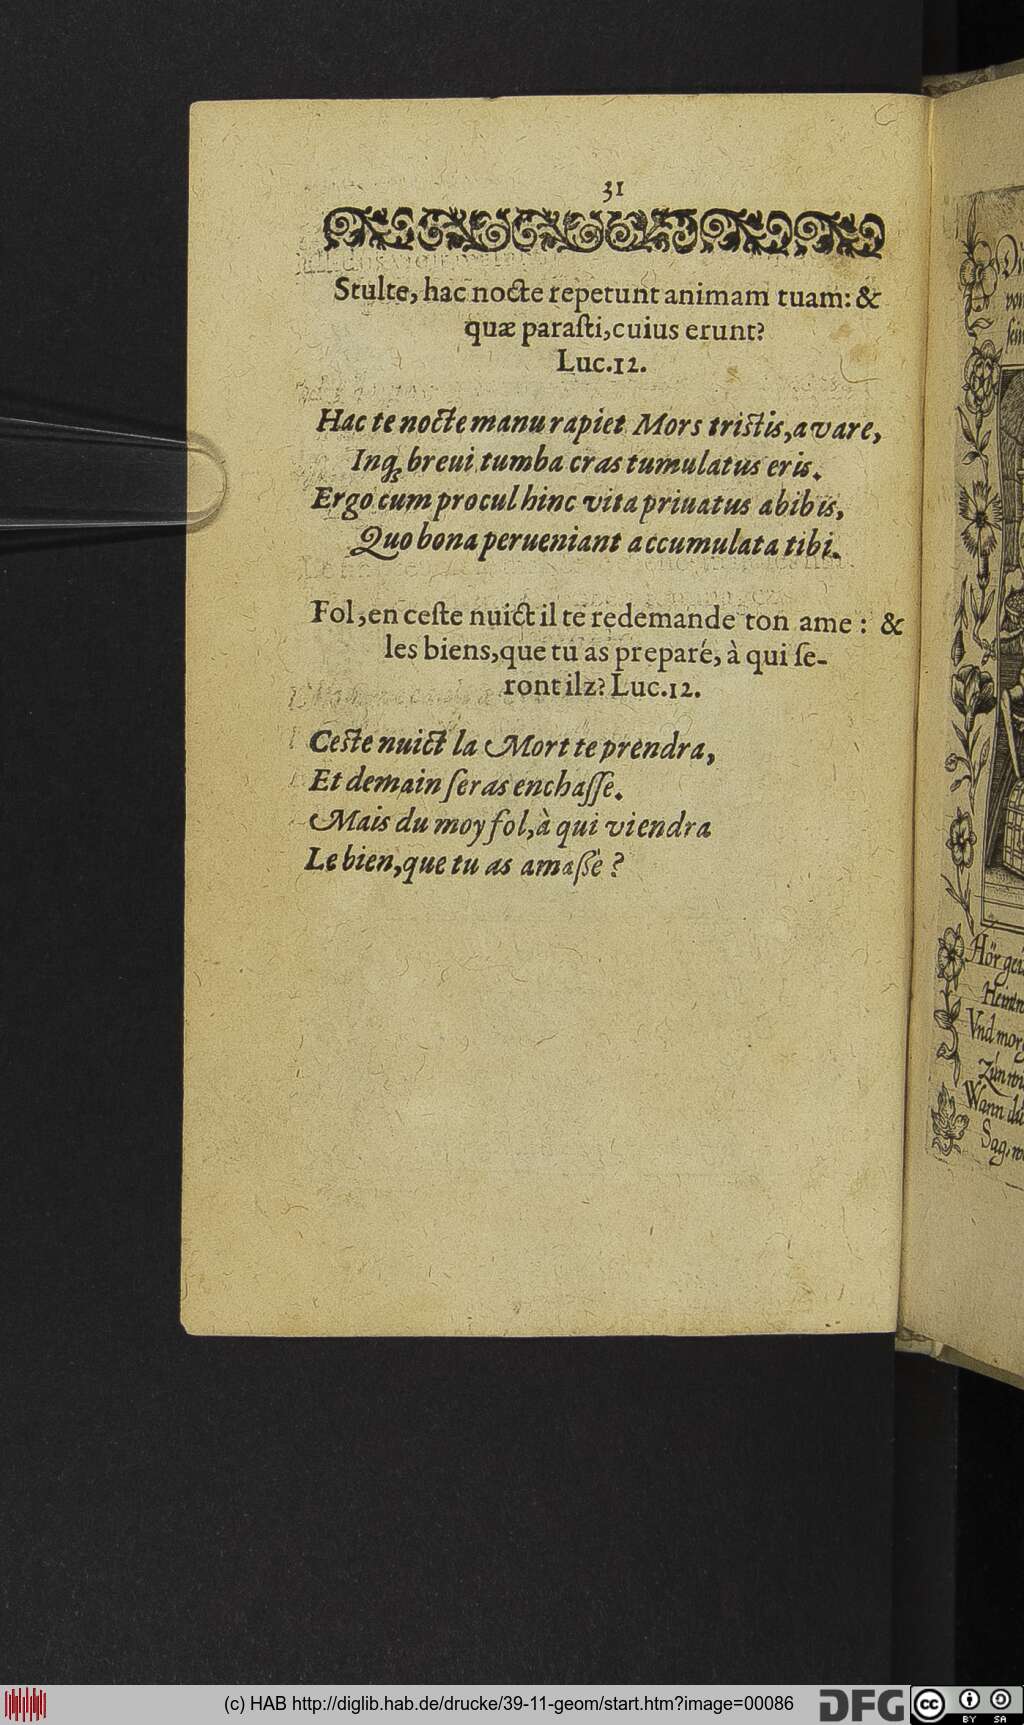 31
Stulte, hac nocte repetunt animam tuam: &
quæ parasti, cuius erunt?
Luc. 12.
Hac te nocte manu rapiet Mors tristis, avare,
Inq; breui tumba cras tumulatus eris.
Ergo cum procul hinc vita priuatus abibis,
Quo bona perueniant accumulata tibi.
Fol, en ceſte nuict il te redemande ton ame: &
les biens, que tu as preparé, à qui ſe-
ront ilz? Luc. 12.
Ceste nuict la Mort te prendra,
Et demain ſeras enchaſſe.
Mais du moy fol, à qui viendra
Le bien, que tu as amaßé?
Hör
Vnd
Wann
Sag,
(c) HAB http://diglib.hab.de/drucke/39-11-geom/start.htm?image=00086
DFG
cc
BY SA